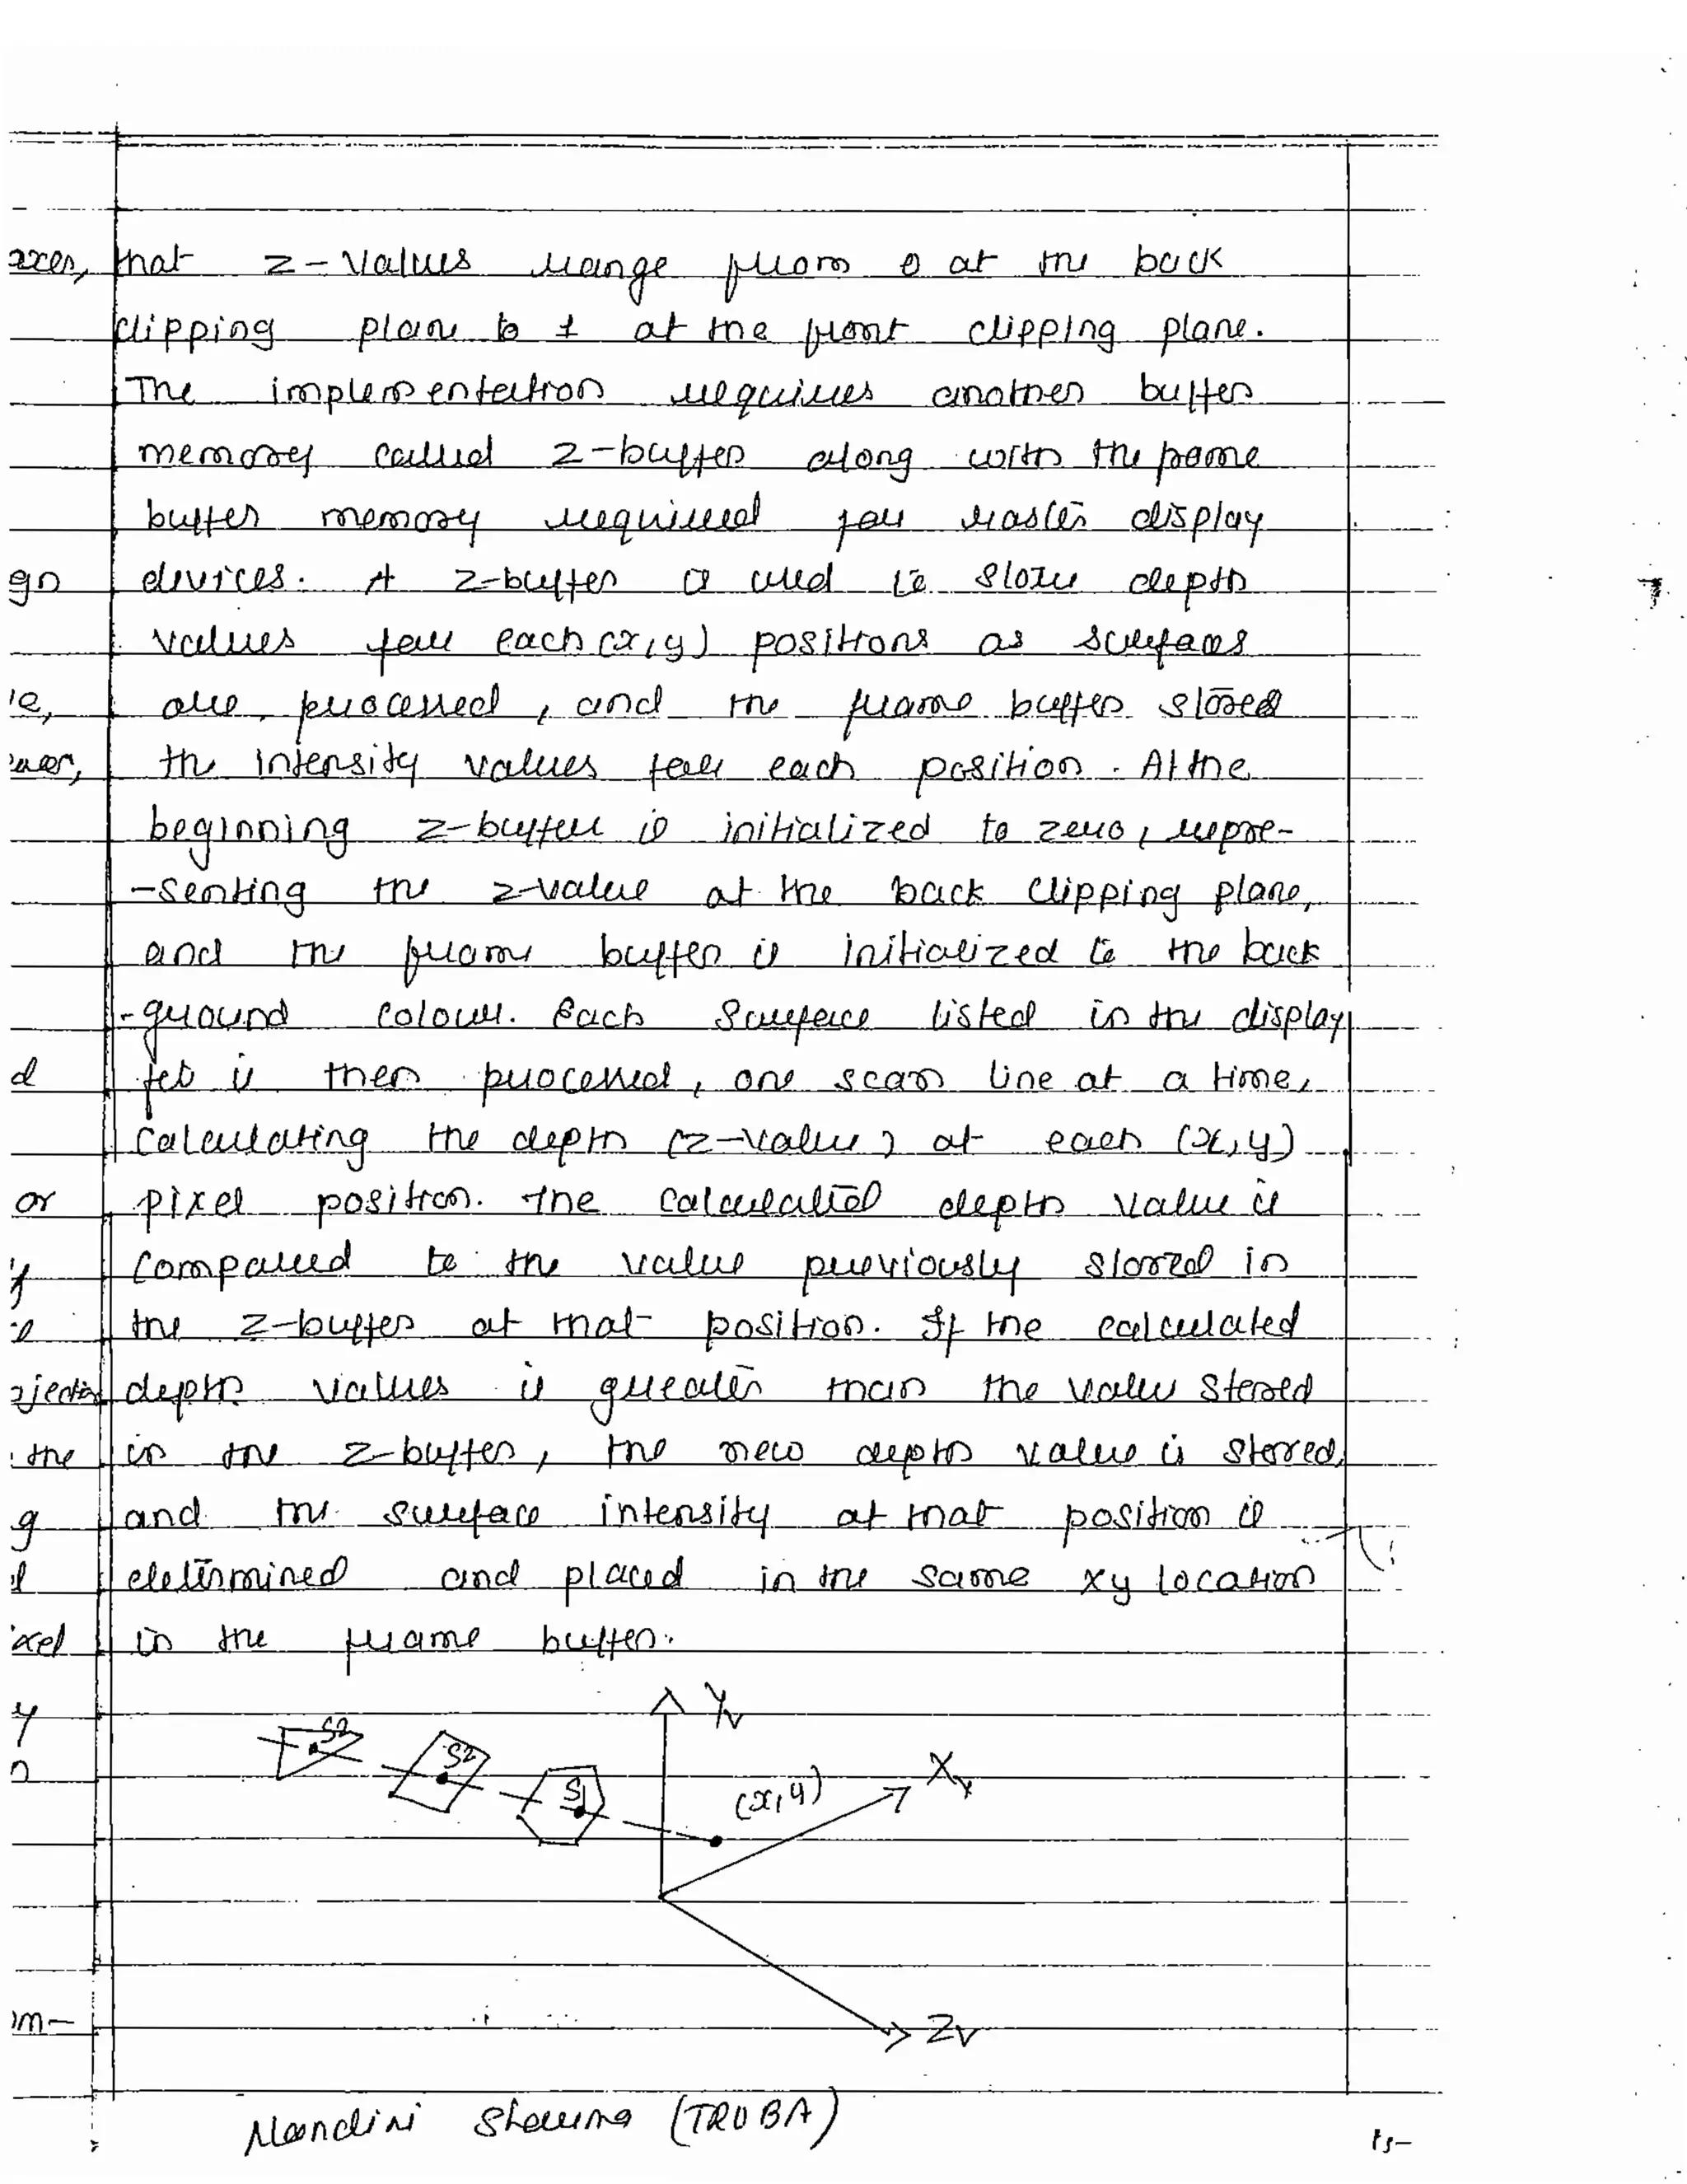 axes, that z-values range from 0 at the back
clipping plane to 1 at the front clipping plane.
The implementation requires another buffer
memory called z-buffer along with the frame
buffer memory required for raster display
go devices. A z-buffer is used to store depth
values for each (x,y) positions as surfaces
are processed, and the frame buffer stored
the intensity values for each position. At the
beginning z-buffer is initialized to zero, repre-
-senting the z-value at the back clipping plane,
and the frame buffer is initialized to the back
-ground colour. Each surface listed in the display
d is then processed, one scan line at a time,
calculating the depth (z-value) at each (x,y)
or pixel position. The calculated depth value is
compared to the value previously stored in
the z-buffer at that position. If the calculated
depth values is greater than the value stored
the in the z-buffer, the new depth value is stored,
g and the surface intensity at that position is
determined and placed in the same xy location
in the frame buffer.
y Yv
S2
S2
n Xv
S1
(x,y)
m- Zv
Nandini Sharma (TRUBA)